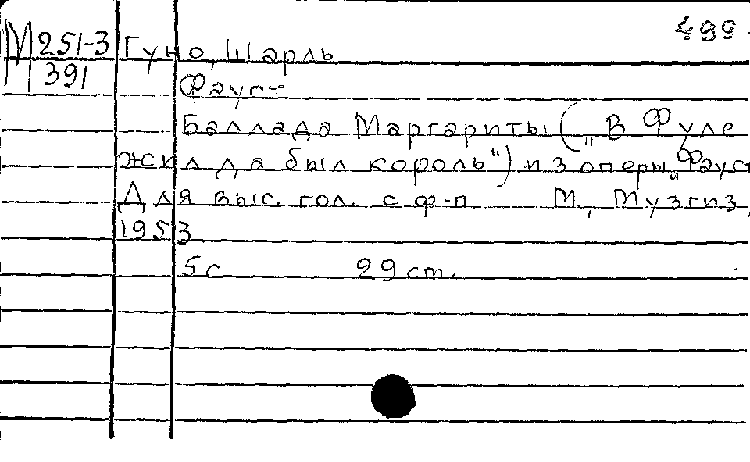 499
М 251-3 Гуно, Шарль
391
Фауст
Баллада Маргариты („В Фуле
жил да был король") из оперы „Фауст
Для выс. гол. с ф-п М., Музгиз,
1953
5 с 29 см.